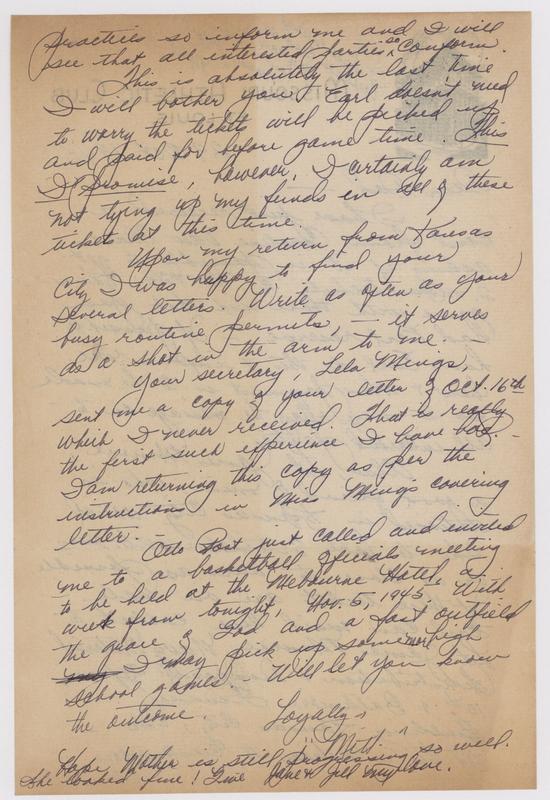 practices so inform me and I will
see that all interested parties so conform.
This is absolutely the last time
I will bother you. Earl doesn't need
to worry the tickets will be picked up
and paid for before game time. This
I promise, however, I certainly am
not tying up my funds in all of these
tickets at this time.
Upon my return from Kansas
City I was happy to find your
several letters. Write as often as your
busy routine permits, — it serves
as a shot in the arm to me. —
Your secretary, Lela Mings,
sent me a copy of your letter of Oct. 16th
which I never received. That is really
the first such experience I have had. -
I am returning this copy as per the
instructions in Miss Mings covering
letter. —
Otto Rost just called and invited
me to a basketball officials meeting
to be held at the Melbourne Hotel, a
week from tonight, Nov. 5, 1945. With
the grace of God and a fast outfield
I may pick up some high
school games. - Will let you know
the outcome.
Loyally,
"Mitt"
Hope Mother is still progressing so well.
She looked fine! Give Jane & Jill my love.